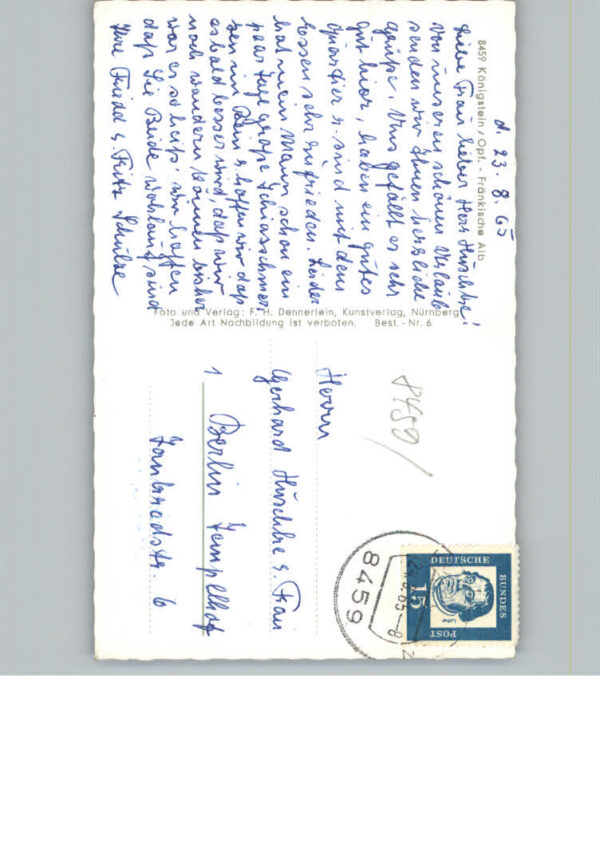 8459 Königstein/Opf. - Fränkische Alb
d. 23. 8. 65
Liebe Frau lieber Herr
von unserem schönen Urlaub
senden wir Ihnen herzliche
Grüße. Uns gefällt es sehr
gut hier, haben ein gutes
Quartier u. sind mit dem
Essen sehr zufrieden. Leider
hat mein Mann schon ein
paar Tage große Schmerzen
im Bein u. hoffen wir daß
es bald besser wird, daß wir
noch wandern können bisher
war es so heiß. Wir hoffen
daß Sie Beide wohlauf sind
Ihre Friedl u. Fritz Schulze
Foto und Verlag: F. H. Dennerlein, Kunstverlag, Nürnberg
Jede Art Nachbildung ist verboten. Best.-Nr. 6
Herrn
Gerhard u. Frau
1 Berlin Tempelhof
6
8459
8459
DEUTSCHE
BUNDES
POST
15
Luther